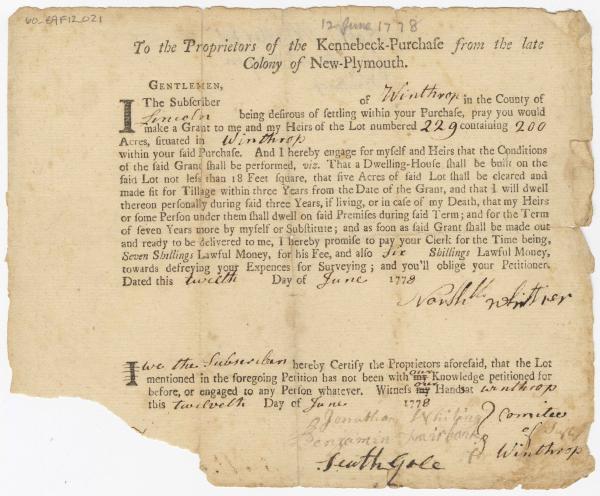 12 June 1778
To the Proprietors of the Kennebeck-Purchase from the late
Colony of New-Plymouth.
GENTLEMEN,
I The Subscriber of Winthrop in the County of
Lincoln being desirous of settling within your Purchase, pray you would
make a Grant to me and my Heirs of the Lot numbered 229 containing 200
Acres, situated in Winthrop
within your said Purchase. And I hereby engage for myself and Heirs that the Conditions
of the said Grant shall be performed, viz. That a Dwelling-House shall be built on the
said Lot not less than 18 Feet square, that five Acres of said Lot shall be cleared and
made fit for Tillage within three Years from the Date of the Grant, and that I will dwell
thereon personally during said three Years, if living, or in case of my Death, that my Heirs
or some Person under them shall dwell on said Premises during said Term; and for the Term
of seven Years more by myself or Substitute; and as soon as said Grant shall be made out
and ready to be delivered to me, I hereby promise to pay your Clerk for the Time being,
Seven Shillings Lawful Money, for his Fee, and also Six Shillings Lawful Money,
towards defreying your Expences for Surveying; and you'll oblige your Petitioner.
Dated this twelth Day of June 1778
whittier
I we the Subscribers hereby Certify the Proprietors aforesaid, that the Lot
mentioned in the foregoing Petition has not been with my our Knowledge petitioned for
before, or engaged to any Person whatever. Witness my our Hands at winthrop
this twelveth Day of June 1778
Jonathan Whiting
Benjamin Fairbank
Comitee
of
Winthrop